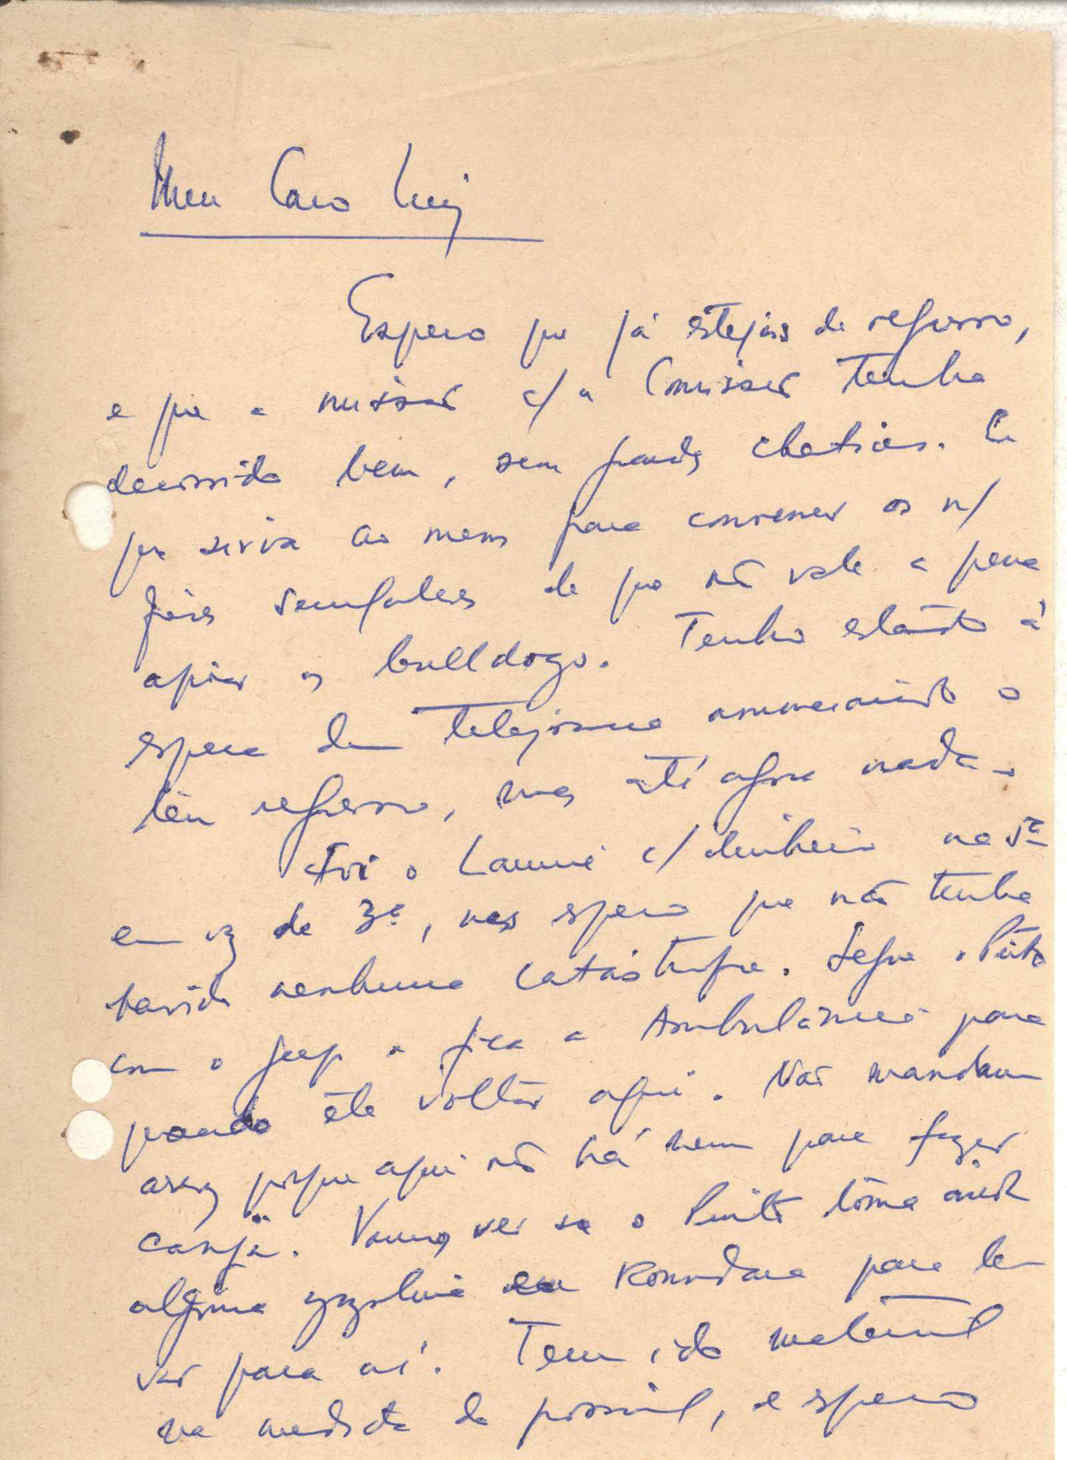 Meu Caro Luiz
Espero que já estejas de regresso,
e que a missão c/ a Comissão tenha
decorrido bem, sem grandes chatices. E
que sirva ao menos para convencer os n/
de que não vale a pena
apoiar os bulldogs. Tenho estado à
espera dum telegrama anunciando o
teu regresso, mas até agora nada.
Foi o c/ dinheiro na 5ª
em vez de 3ª, mas espero que não tenha
havido nenhuma catástrofe. Segue o Pinto
com o jeep e fica a Ambulância para
quando ele voltar aqui. Não mandam
arroz porque aqui não há nem para fazer
canja. Vamos ver se o Pinto toma ainda
alguma gazolina em para le-
var para aí. Tem ido material
na medida do possível, e espero